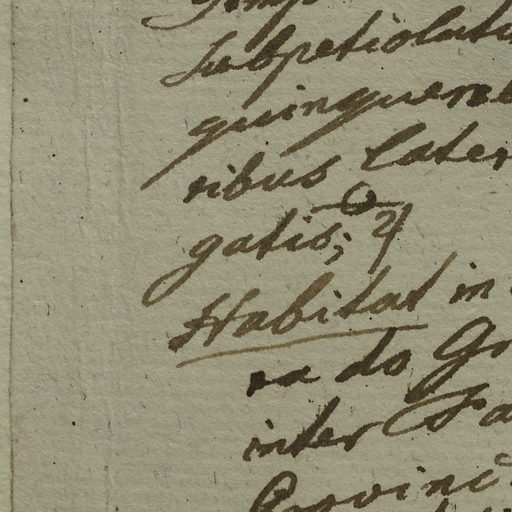 Subpetiolat
quinquene
ribus later
gatis; ♃
Habitat in
ra do Gr
inter Fa
Provinc